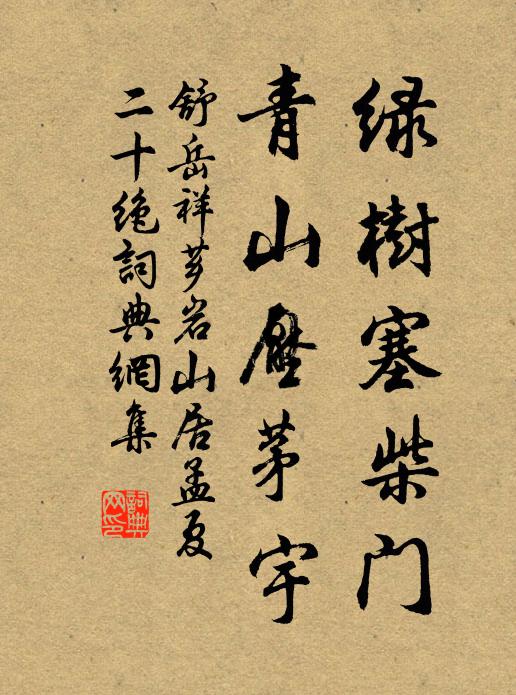 绿樹塞柴门
青山壓茅宇
舒岳祥芗岩山居孟夏
二十绝詞典網集
詞典網印